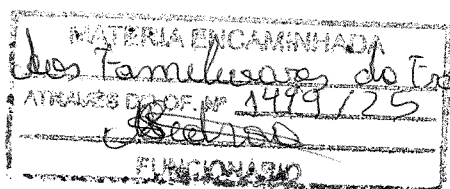 MATÉRIA ENCAMINHADA
aos Familiares do
ATRAVÉS DO OF. Nº 1499/25
FUNCIONÁRIO